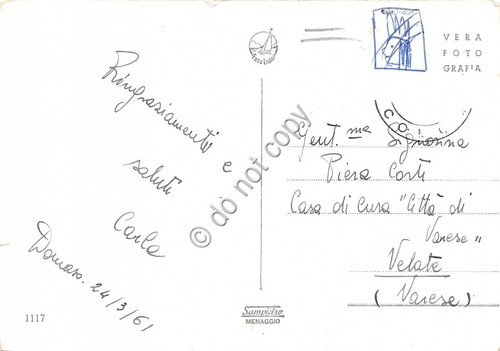 VERA
FOTO
GRAFIA
Ringraziamenti e
saluti
Carla
Domaso. 24/3/61
Gent.ma Signorina
Piera Corti
Casa di Cura "Città di
Varese"
Velate
(Varese)
1117
Sampietro
MENAGGIO
© do not copy